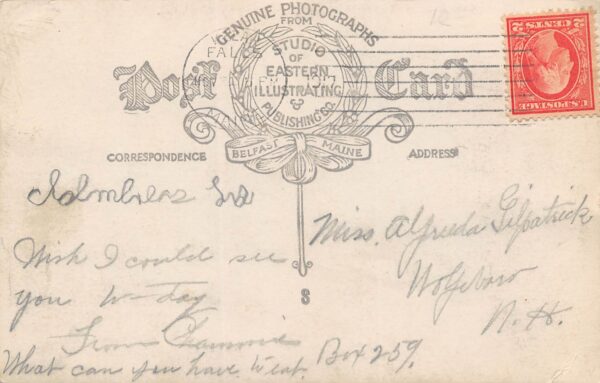 GENUINE PHOTOGRAPHS
FROM
STUDIO
OF
EASTERN
ILLUSTRATING
&
PUBLISHING CO.
BELFAST MAINE
Post Card
FALLS
1917
MAINE
U.S. POSTAGE
2 CENTS 2
12
CORRESPONDENCE
ADDRESS
Wish I could see
you to-day
From
What can you have to eat.
Miss. Alfreda Gilpatrick
Wolfeboro
N. H.
Box 259.
S